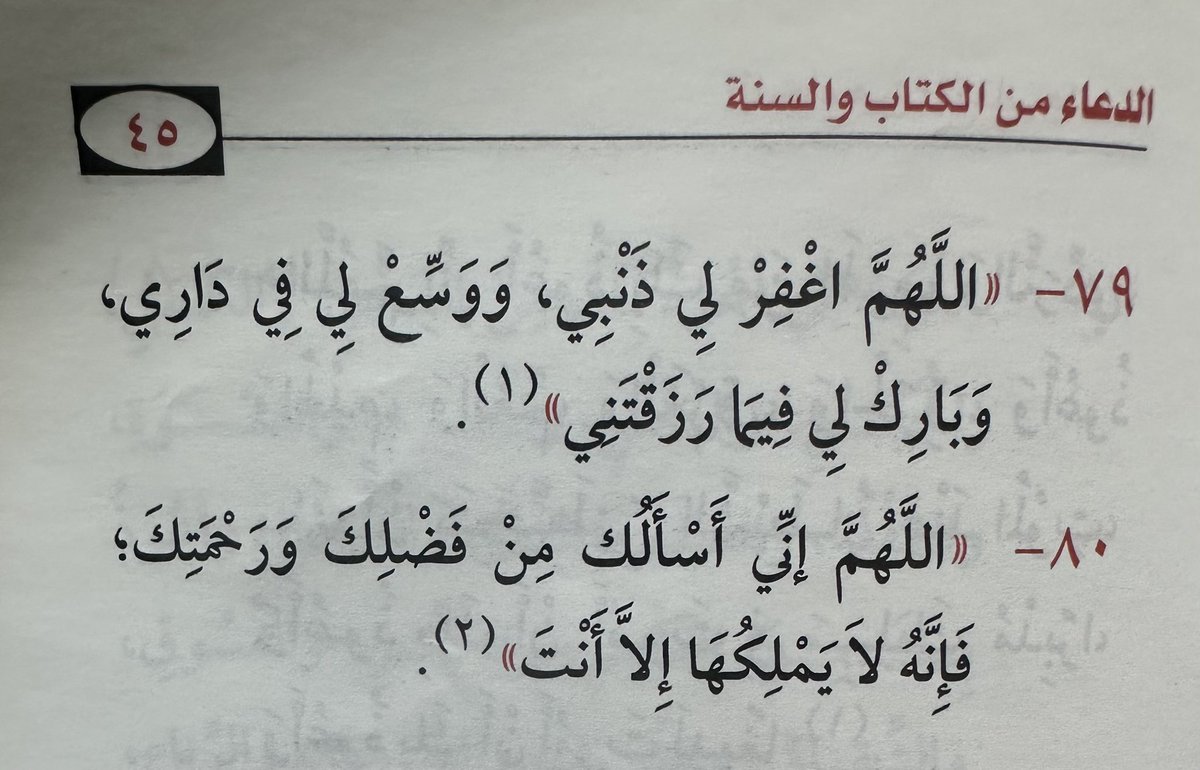 الدعاء من الكتاب والسنة
٤٥
٧٩- «اللَّهُمَّ اغْفِرْ لِي ذَنْبِي، وَوَسِّعْ لِي فِي دَارِي،
وَبَارِكْ لِي فِيمَا رَزَقْتَنِي»(١).
٨٠- «اللَّهُمَّ إنِّي أَسْأَلُك مِنْ فَضْلِكَ وَرَحْمَتِكَ؛
فَإِنَّهُ لاَ يَمْلِكُهَا إِلاَّ أَنْتَ»(٢).